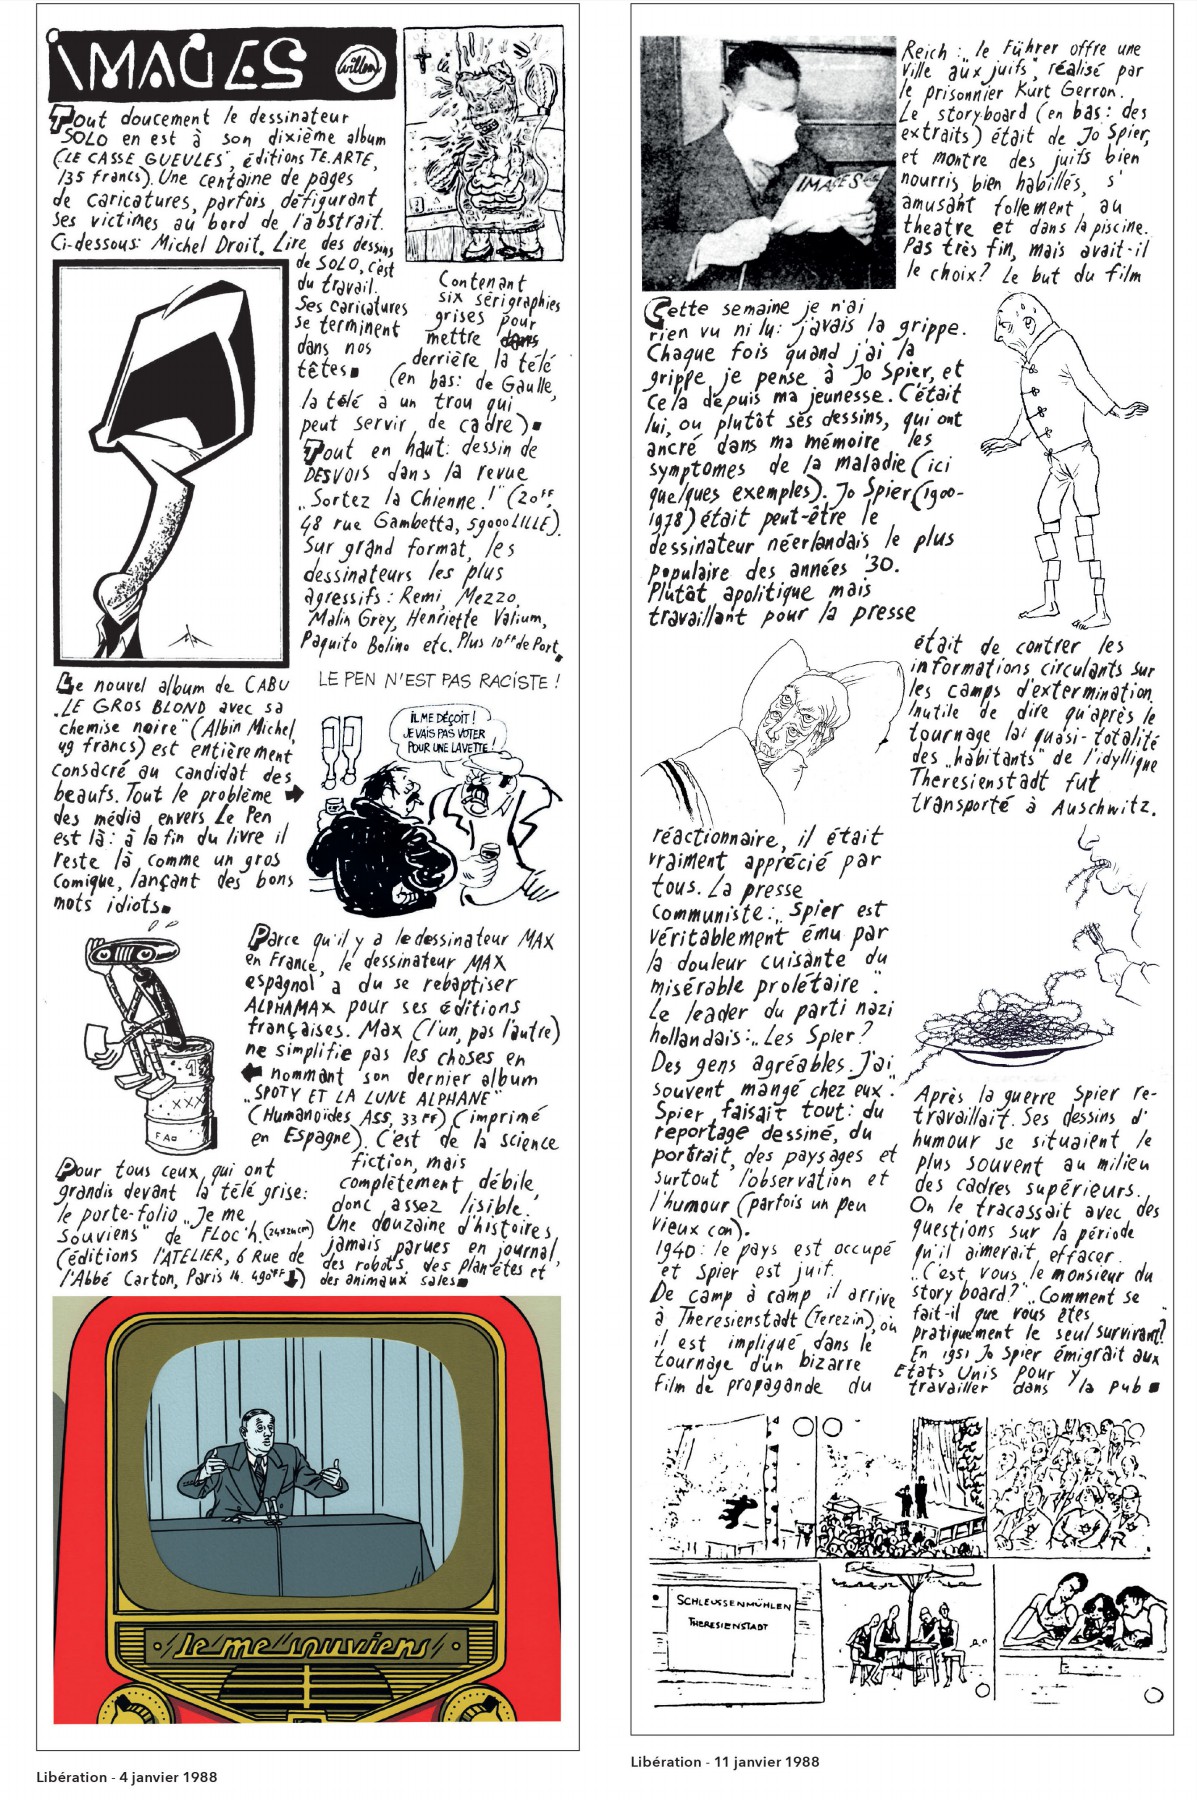 IMAGES
Willem
Tout doucement le dessinateur
SOLO en est à son dixième album
("LE CASSE GUEULES", éditions TE.ARTE,
135 francs). Une centaine de pages
de caricatures, parfois défigurant
ses victimes au bord de l'abstrait.
Ci-dessous: Michel Droit. Lire des dessins
de SOLO, c'est
du travail.
Ses caricatures
se terminent
dans nos
têtes
Contenant
six sérigraphies
grises pour
mettre dans
derrière la télé
(en bas: de Gaulle,
la télé a un trou qui
peut servir de cadre)
Tout en haut: dessin de
DESVOIS dans la revue
"Sortez la Chienne!" (20FF,
48 rue Gambetta, 59000 LILLE).
Sur grand format, les
dessinateurs les plus
agressifs: Remi, Mezzo,
Malin Grey, Henriette Valium,
Paquito Bolino etc. Plus 10FF de Port.
Le nouvel album de CABU
"LE GROS BLOND avec sa
chemise noire" (Albin Michel,
49 francs) est entièrement
consacré au candidat des
beaufs. Tout le problème
des média envers Le Pen
est là: à la fin du livre il
reste là comme un gros
comique, lançant des bons
mots idiots
LE PEN N'EST PAS RACISTE!
IL ME DÉÇOIT!
JE VAIS PAS VOTER
POUR UNE LAVETTE!
XXX
FAO
Parce qu'il y a le dessinateur MAX
en France, le dessinateur MAX
espagnol a du se rebaptiser
ALPHAMAX pour ses éditions
françaises. Max (l'un, pas l'autre)
ne simplifie pas les choses en
nommant son dernier album
"SPOTY ET LA LUNE ALPHANE"
(Humanoïdes Ass, 33 FF) (imprimé
en Espagne). C'est de la science
fiction, mais
complètement débile,
donc assez lisible.
Une douzaine d'histoires,
jamais parues en journal,
des robots, des planètes et
des animaux sales
Pour tous ceux, qui ont
grandis devant la télé grise:
le porte-folio "Je me
souviens" de FLOC'h. (24x24cm)
(éditions l'ATELIER, 6 Rue de
l'Abbé Carton, Paris 14. 490FF)
Je me souviens
Libération - 4 janvier 1988
IMAGES
Reich: "le Führer offre une
Ville aux juifs", réalisé par
le prisonnier Kurt Gerron.
Le storyboard (en bas: des
extraits) était de Jo Spier,
et montre des juifs bien
nourris, bien habillés, s'
amusant follement, au
theatre et dans la piscine.
Pas très fin, mais avait-il
le choix? Le but du film
Cette semaine je n'ai
rien vu ni lu: j'avais la grippe.
Chaque fois quand j'ai la
grippe je pense à Jo Spier, et
cela depuis ma jeunesse. C'était
lui, ou plutôt ses dessins, qui ont
ancré dans ma mémoire les
symptomes de la maladie (ici
quelques exemples). Jo Spier (1900-
1978) était peut-être le
dessinateur néerlandais le plus
populaire des années '30.
Plutôt apolitique mais
travaillant pour la presse
était de contrer les
informations circulants sur
les camps d'extermination.
Inutile de dire qu'après le
tournage la quasi-totalité
des "habitants" de l'idyllique
Theresienstadt fut
transporté à Auschwitz.
réactionnaire, il était
vraiment apprécié par
tous. La presse
communiste: "Spier est
véritablement ému par
la douleur cuisante du
misérable prolétaire".
Le leader du parti nazi
hollandais: "Les Spier?
Des gens agréables. J'ai
souvent mangé chez eux".
Spier faisait tout: du
reportage dessiné, du
portrait, des paysages et
surtout l'observation et
l'humour (parfois un peu
vieux con).
1940: le pays est occupé
et Spier est juif.
De camp à camp il arrive
à Theresienstadt (Terezin), où
il est impliqué dans le
tournage d'un bizarre
film de propagande du
Après la guerre Spier re-
travaillait. Ses dessins d'
humour se situaient le
plus souvent au milieu
des cadres supérieurs.
On le tracassait avec des
questions sur la période
qu'il aimerait effacer.
"C'est vous le monsieur du
story board?" "Comment se
fait-il que vous êtes
pratiquement le seul survivant?"
En 1951 Jo Spier émigrait aux
Etats Unis pour y
travailler dans la pub
SCHLEUSSENMÜHLEN
THERESIENSTADT
Libération - 11 janvier 1988